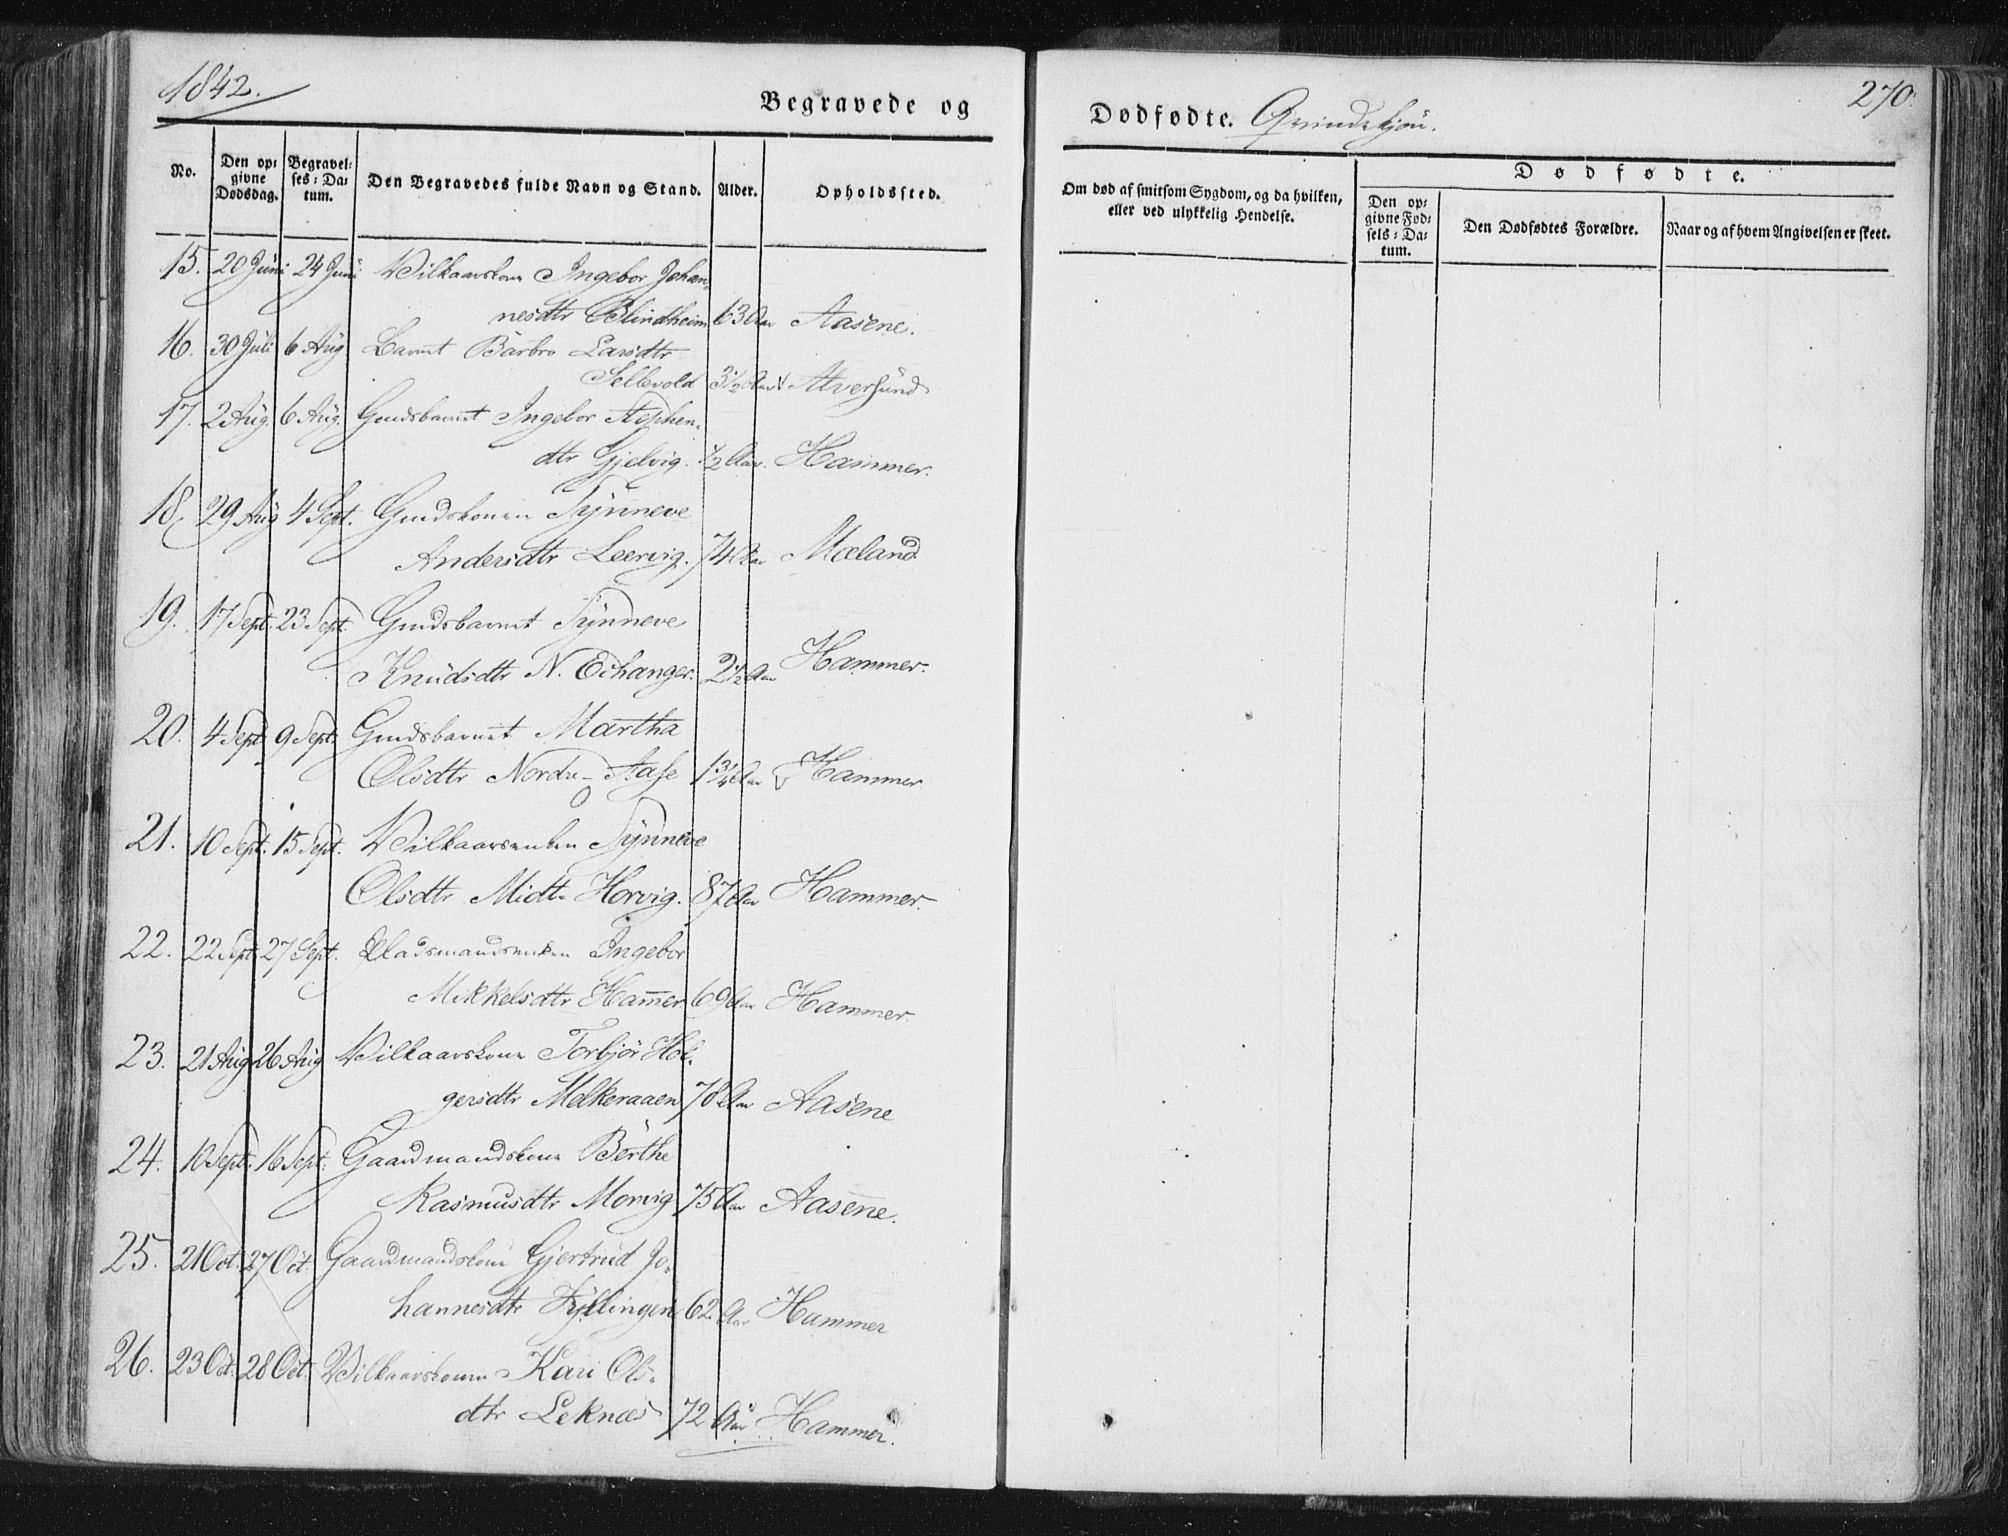 1842.
Begravede og
No.
Den op-
givne
Dødsdag.
Begravel-
ses-Da-
tum.
Den Begravedes fulde Navn og Stand.
Alder.
Opholdssted.
15. 20 Juni 24 Juni Vilkaarskone Ingebor Johan-
nesdtr Blindheim 63 Aar Aasene.
16. 30 Juli 6 Aug Barnet Barbro Larsdtr
Sellevold 3½ Aar Alversund
17. 2 Aug. 6 Aug. Gmdsbarnet Ingebor Stephen-
dtr Gjelvig. ½ Aar. Hammer.
18. 29 Aug 4 Sept. Gmdskonen Synneve
Andersdtr Leervig. 74 Aar Mæland
19. 17 Sept. 23 Sept. Gmdsbarnet Synneve
Knudsdtr N. Echanger. 2½ Aar Hammer.
20. 4 Sept 9 Sept. Gmdsbarnet Martha
Olsdtr Nordre-Aase 1¾ Aar Hammer
21. 10 Sept. 15 Sept. Vilkaarsenken Synneve
Olsdtr Midt-Horvig. 87 Aar Hammer.
22. 22 Sept. 27 Sept. Pladsmandsenken Ingebor
Mikkelsdtr Ham̅er 69 Aar Hammer.
23. 21 Aug 26 Aug Vilkaarskone Torbjør Hol-
gersdtr Melkeraaen 78 Aar Aasene
24. 10 Sept. 16 Sept. Gaardmandskone Berthe
Rasmusdtr Morvig 75 Aar Aasene.
25. 21 Oct. 27 Oct. Gaardmandskone Gjertrud Jo-
hannesdtr Fyllingen 62 Aar Hammer
26. 23 Oct. 28 Oct. Vilkaarskonen Kari Ols-
dtr Leknæs 72 Aar Hammer.
Dødfødte. Qvindekjøn.
270.
Om død af smitsom Sygdom, og da hvilken,
eller ved ulykkelig Hendelse.
Dødfødte.
Den op-
givne Fød-
sels-Da-
tum.
Den Dødfødtes Forældre.
Naar og af hvem Angivelsen er skeet.